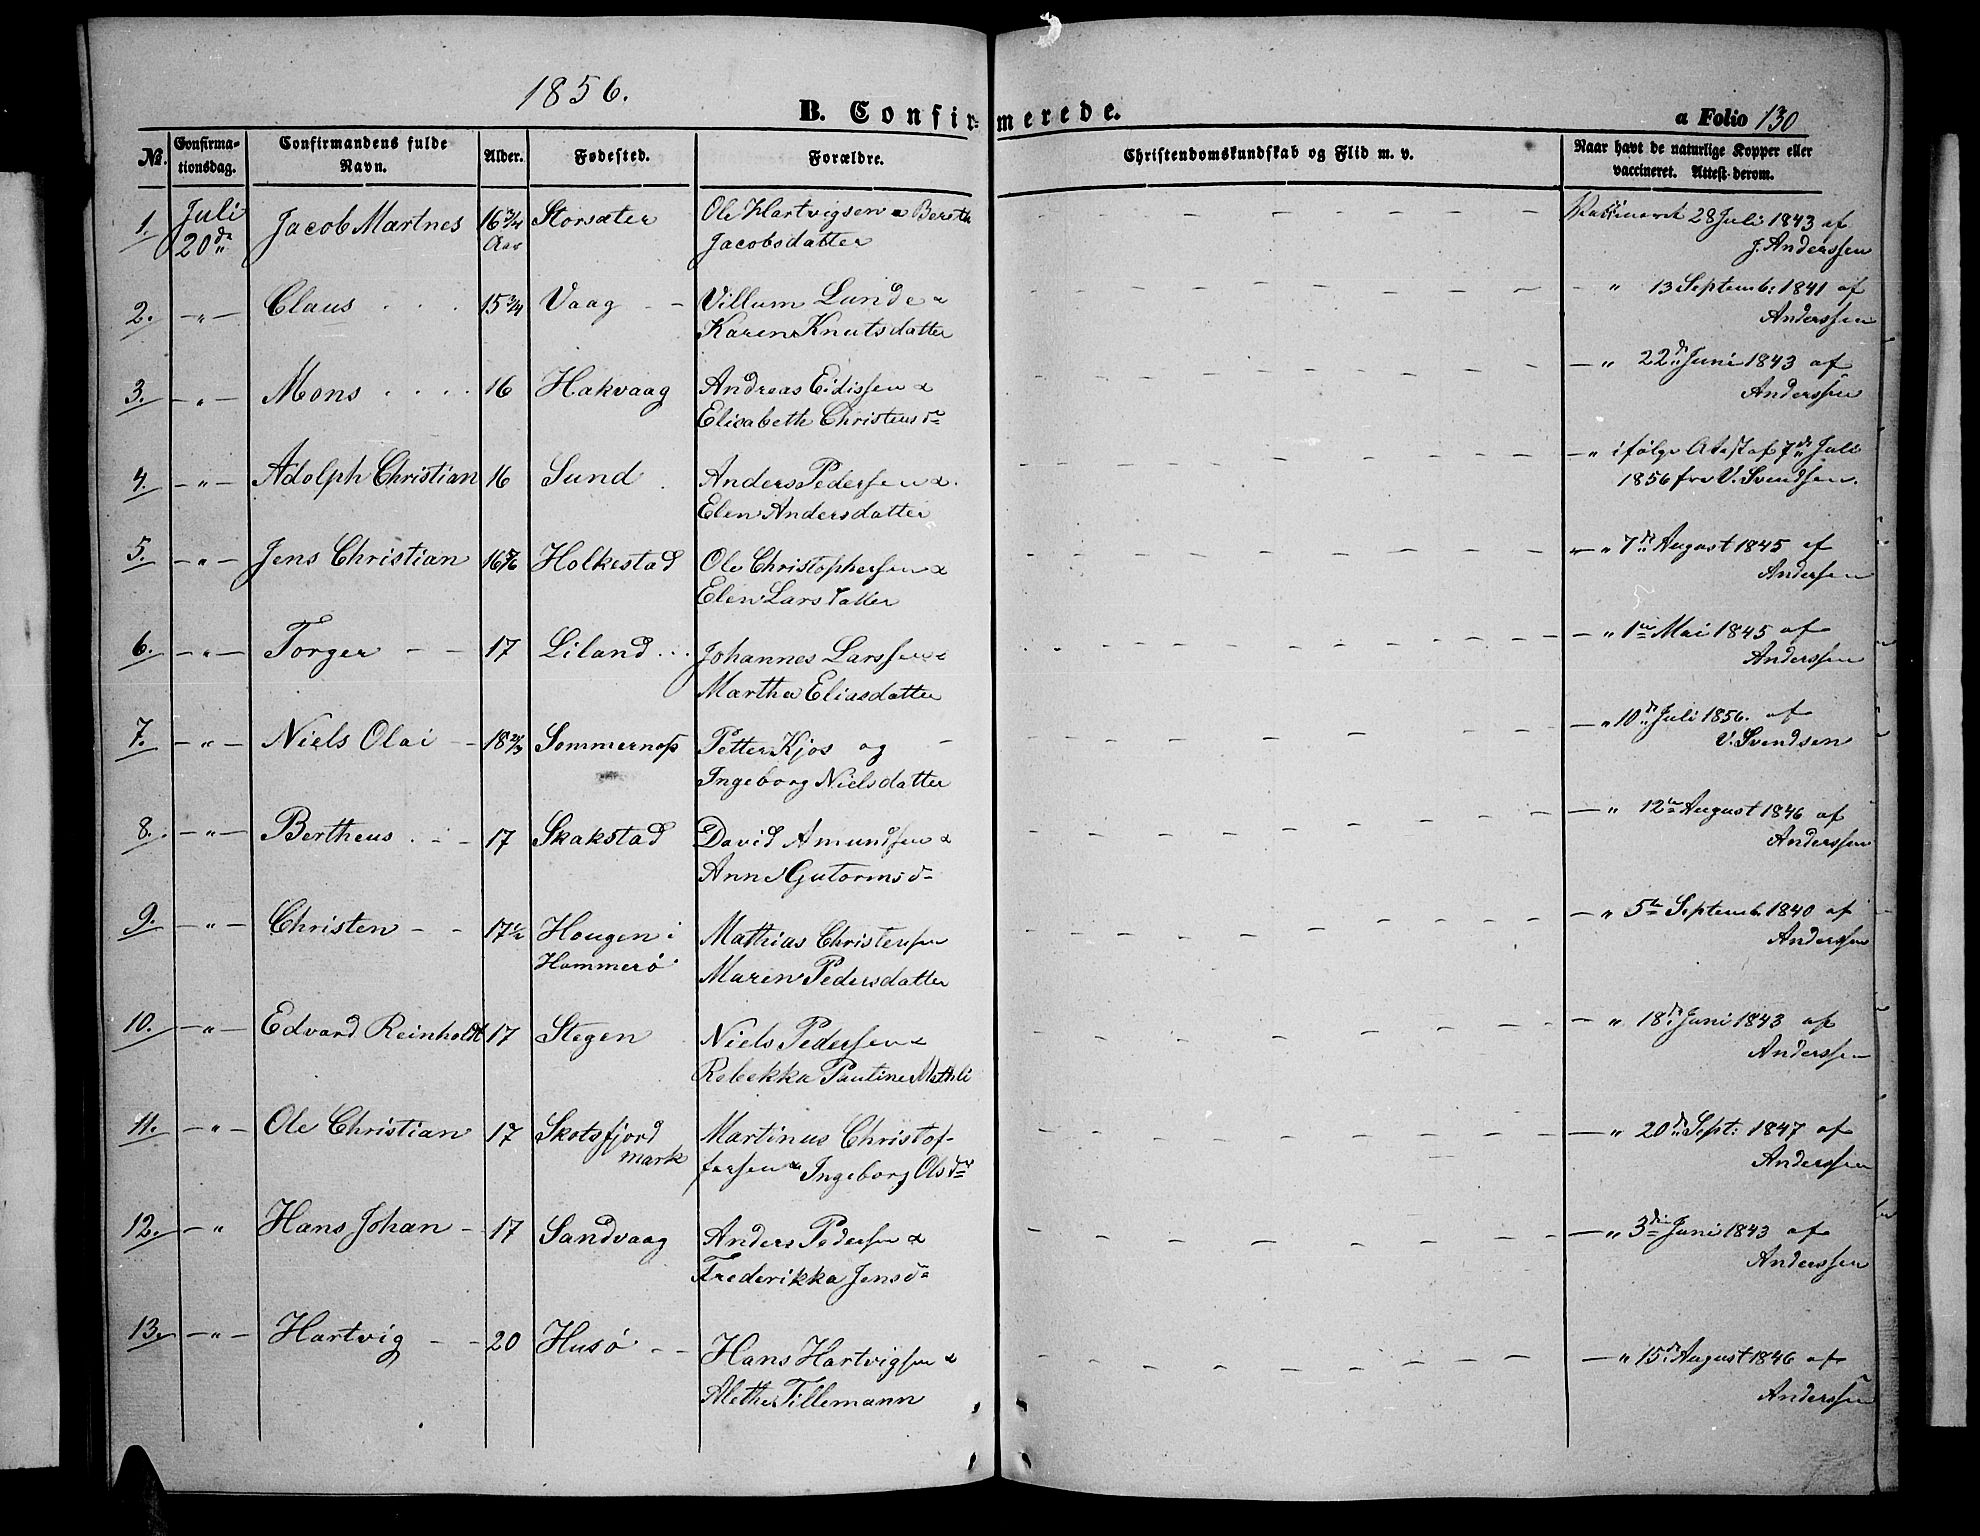 1856.
B. Confirmerede.
a Folio 130
No. Confirmationsdag. Confirmandens fulde Navn. Alder. Fødested. Forældre. Christendomskundskab og Flid m. v. Naar havt de naturlige Kopper eller vaccineret. Attest derom.
1. Juli 20de Jacob Martnes 16 3/4 Aar Storsæter Ole Hartvigsen & Bereth Vaccineret 28 Juli 1843 af
Jacobsdatter J. Anderssen
2. — " — Claus 15 3/4 Vaag Villum Lund & — " 13 Septemb: 1841 af
Karen Knutsdatter Anderssen
3. — " — Mons 16 Hakvaag Andreas Eidissen & — " 22de Juni 1843 af
Elisabeth Christensdr Anderssen
4. — " — Adolph Christian 16 Sund Anders Pedersen & — " ifølge Atest af 7de Juli
Elen Andersdatter 1856 fra V. Svendsen.
5. — " — Jens Christian 16 Holkestad Ole Christophersen & — " 7de August 1845 af
Elen Larsdatter Andersen
6. — " — Torger — — 17 Liland Johannes Larssen & — " 1te Mai 1845 af
Martha Eliasdatter Anderssen
7. — " — Niels Olai — 18 2/3 Sommernæs Petter Kjos og — " 10de Juli 1856. af
Ingeborg Nielsdatter V. Svendsen
8. — " — Bertheus 17 Skakstad David Amundsen & — " 12te August 1846 af
Anne Gutormsd Anderssen
9. — " — Christen — — 17 1/2 Hougen i Mathias Christensen — " 5te Septemb. 1840 af
Hammerø Maren Pedersdatter Anderssen
10. — " — Edvard Reinholdt 17 Stegen Niels Pedersen & — " 18de Juni 1843 af
Rebekka Pauline Methli Anderssen
11. — " — Ole Christian 17 Skotsfjord Martinus Christof- — " 20de Sept: 1847 af
mark fersen & Ingeborg Olsdr Anderssen
12. — " Hans Johan — 17 Sandvaag Anders Pedersen & — " 3die Juni 1843 af
Frederikka Jensd Anderssen
13. — " — Hartvig — — 20 Husø — — Hans Hartvigsen & — " 15de August 1846 af
Alethe Tillemann Anderssen